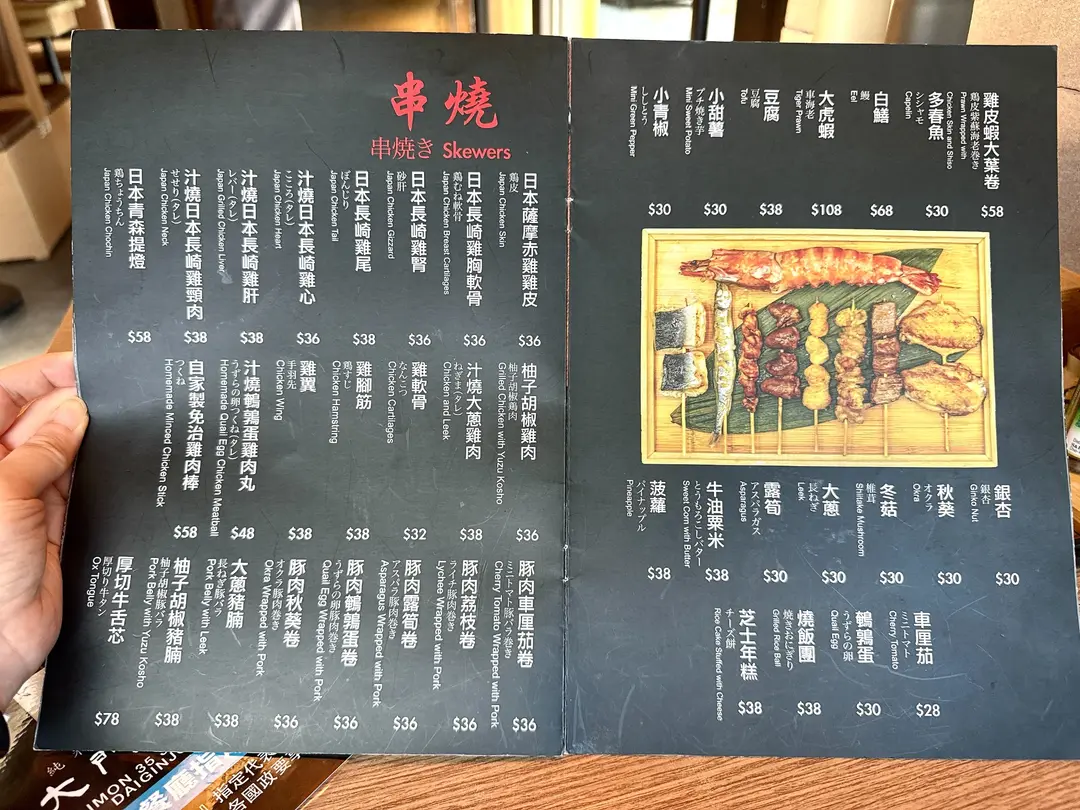 串燒
串焼き Skewers
日本薩摩赤雞雞皮
鶏皮
Japan Chicken Skin
$36
日本長崎雞胸軟骨
鶏むね軟骨
Japan Chicken Breast Cartilages
$36
日本長崎雞腎
砂肝
Japan Chicken Gizzard
$36
日本長崎雞尾
ぼんじり
Japan Chicken Tail
$38
汁燒日本長崎雞心
こころ(タレ)
Japan Chicken Heart
$36
汁燒日本長崎雞肝
レバー(タレ)
Japan Grilled Chicken Liver
$38
汁燒日本長崎雞頸肉
せせり(タレ)
Japan Chicken Neck
$38
日本青森提燈
鶏ちょうちん
Japan Chicken Chochin
$58
柚子胡椒雞肉
柚子胡椒鶏肉
Grilled Chicken with Yuzu Kosho
$36
汁燒大蔥雞肉
ねぎま(タレ)
Chicken and Leek
$38
雞軟骨
なんこつ
Chicken Cartilages
$32
雞腳筋
鶏すじ
Chicken Hamstring
$38
雞翼
手羽先
Chicken Wing
$38
汁燒鵪鶉蛋雞肉丸
うずらの卵つくね(タレ)
Homemade Quail Egg Chicken Meatball
$48
自家製免治雞肉棒
つくね
Homemade Minced Chicken Stick
$58
豚肉車厘茄卷
ミニトマト豚バラ巻き
Cherry Tomato Wrapped with Pork
$36
豚肉荔枝卷
ライチ豚肉巻き
Lychee Wrapped with Pork
$36
豚肉露筍卷
アスパラ豚肉巻き
Asparagus Wrapped with Pork
$36
豚肉鵪鶉蛋卷
うずらの卵豚肉巻き
Quail Egg Wrapped with Pork
$36
豚肉秋葵卷
オクラ豚肉巻き
Okra Wrapped with Pork
$36
大蔥豬腩
長ねぎ豚バラ
Pork Belly with Leek
$38
柚子胡椒豬腩
柚子胡椒豚バラ
Pork Belly with Yuzu Kosho
$38
厚切牛舌芯
厚切り牛タン
Ox Tongue
$78
雞皮蝦大葉卷
鶏皮紫蘇海老巻き
Prawn Wrapped with
Chicken Skin and Shiso
$58
多春魚
シシャモ
Capelin
$30
白鱔
鰻
Eel
$68
大虎蝦
車海老
Tiger Prawn
$108
豆腐
豆腐
Tofu
$38
小甜薯
プチ焼き芋
Mini Sweet Potato
$30
小青椒
ししとう
Mini Green Pepper
$30
銀杏
銀杏
Ginko Nut
$30
秋葵
オクラ
Okra
$30
冬菇
椎茸
Shiitake Mushroom
$30
大蔥
長ねぎ
Leek
$30
露筍
アスパラガス
Asparagus
$30
牛油粟米
とうもろこしバター
Sweet Corn with Butter
$38
菠蘿
パイナップル
Pineapple
$38
車厘茄
ミニトマト
Cherry Tomato
$28
鵪鶉蛋
うずらの卵
Quail Egg
$30
燒飯團
焼きおにぎり
Grilled Rice Ball
$38
芝士年糕
チーズ餅
Rice Cake Stuffed with Cheese
$38
純
大
IMON 35
DAIGINJ
餐廳指
指定代表
各國政要